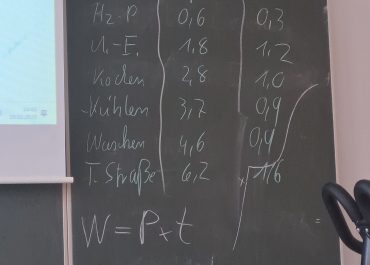 Hz-P 0,6 0,3
U.-E. 1,8 1,2
Kochen 2,8 1,0
Kühlen 3,7 0,9
Waschen 4,6 0,9
T. Straße 6,2 1,6
W = P x t